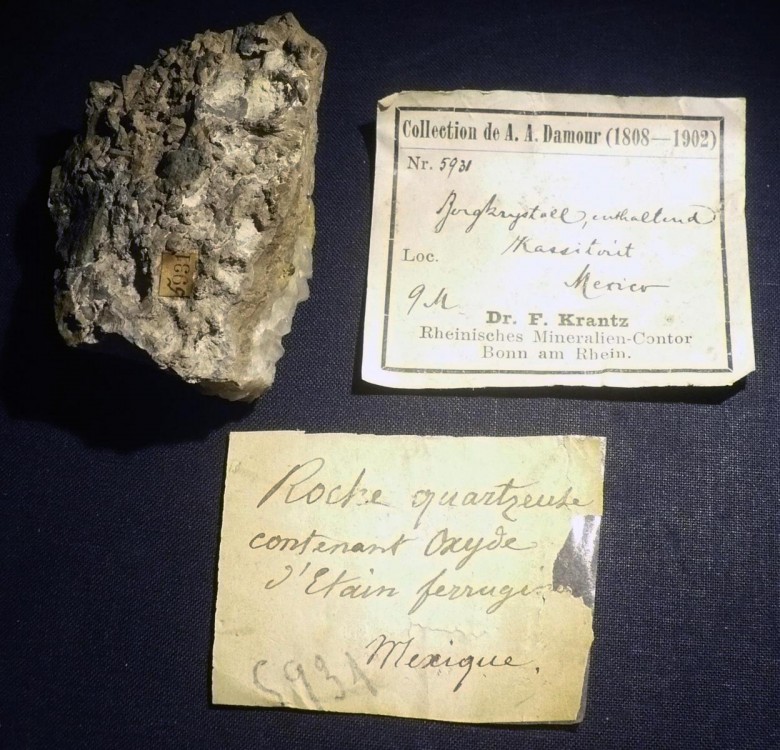 5931
Collection de A. A. Damour (1808—1902)
Nr. 5931
Bergkrystall, enthaltend
Loc. Kassiterit
Mexico
9 M
Dr. F. Krantz
Rheinisches Mineralien-Contor
Bonn am Rhein.
Roche quartzeuse
contenant Oxyde
d'Etain
Mexique.
5931